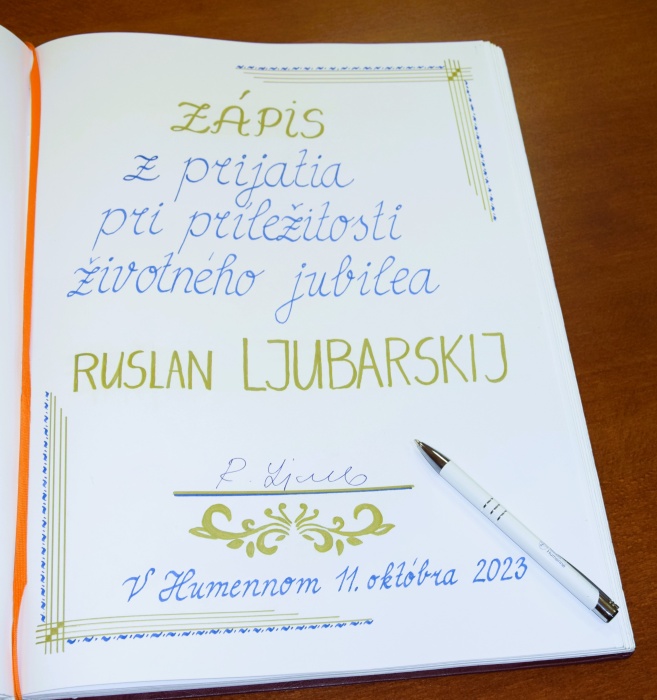 ZÁPIS
z prijatia
pri príležitosti
životného jubilea
RUSLAN LJUBARSKIJ
V Humennom 11. októbra 2023